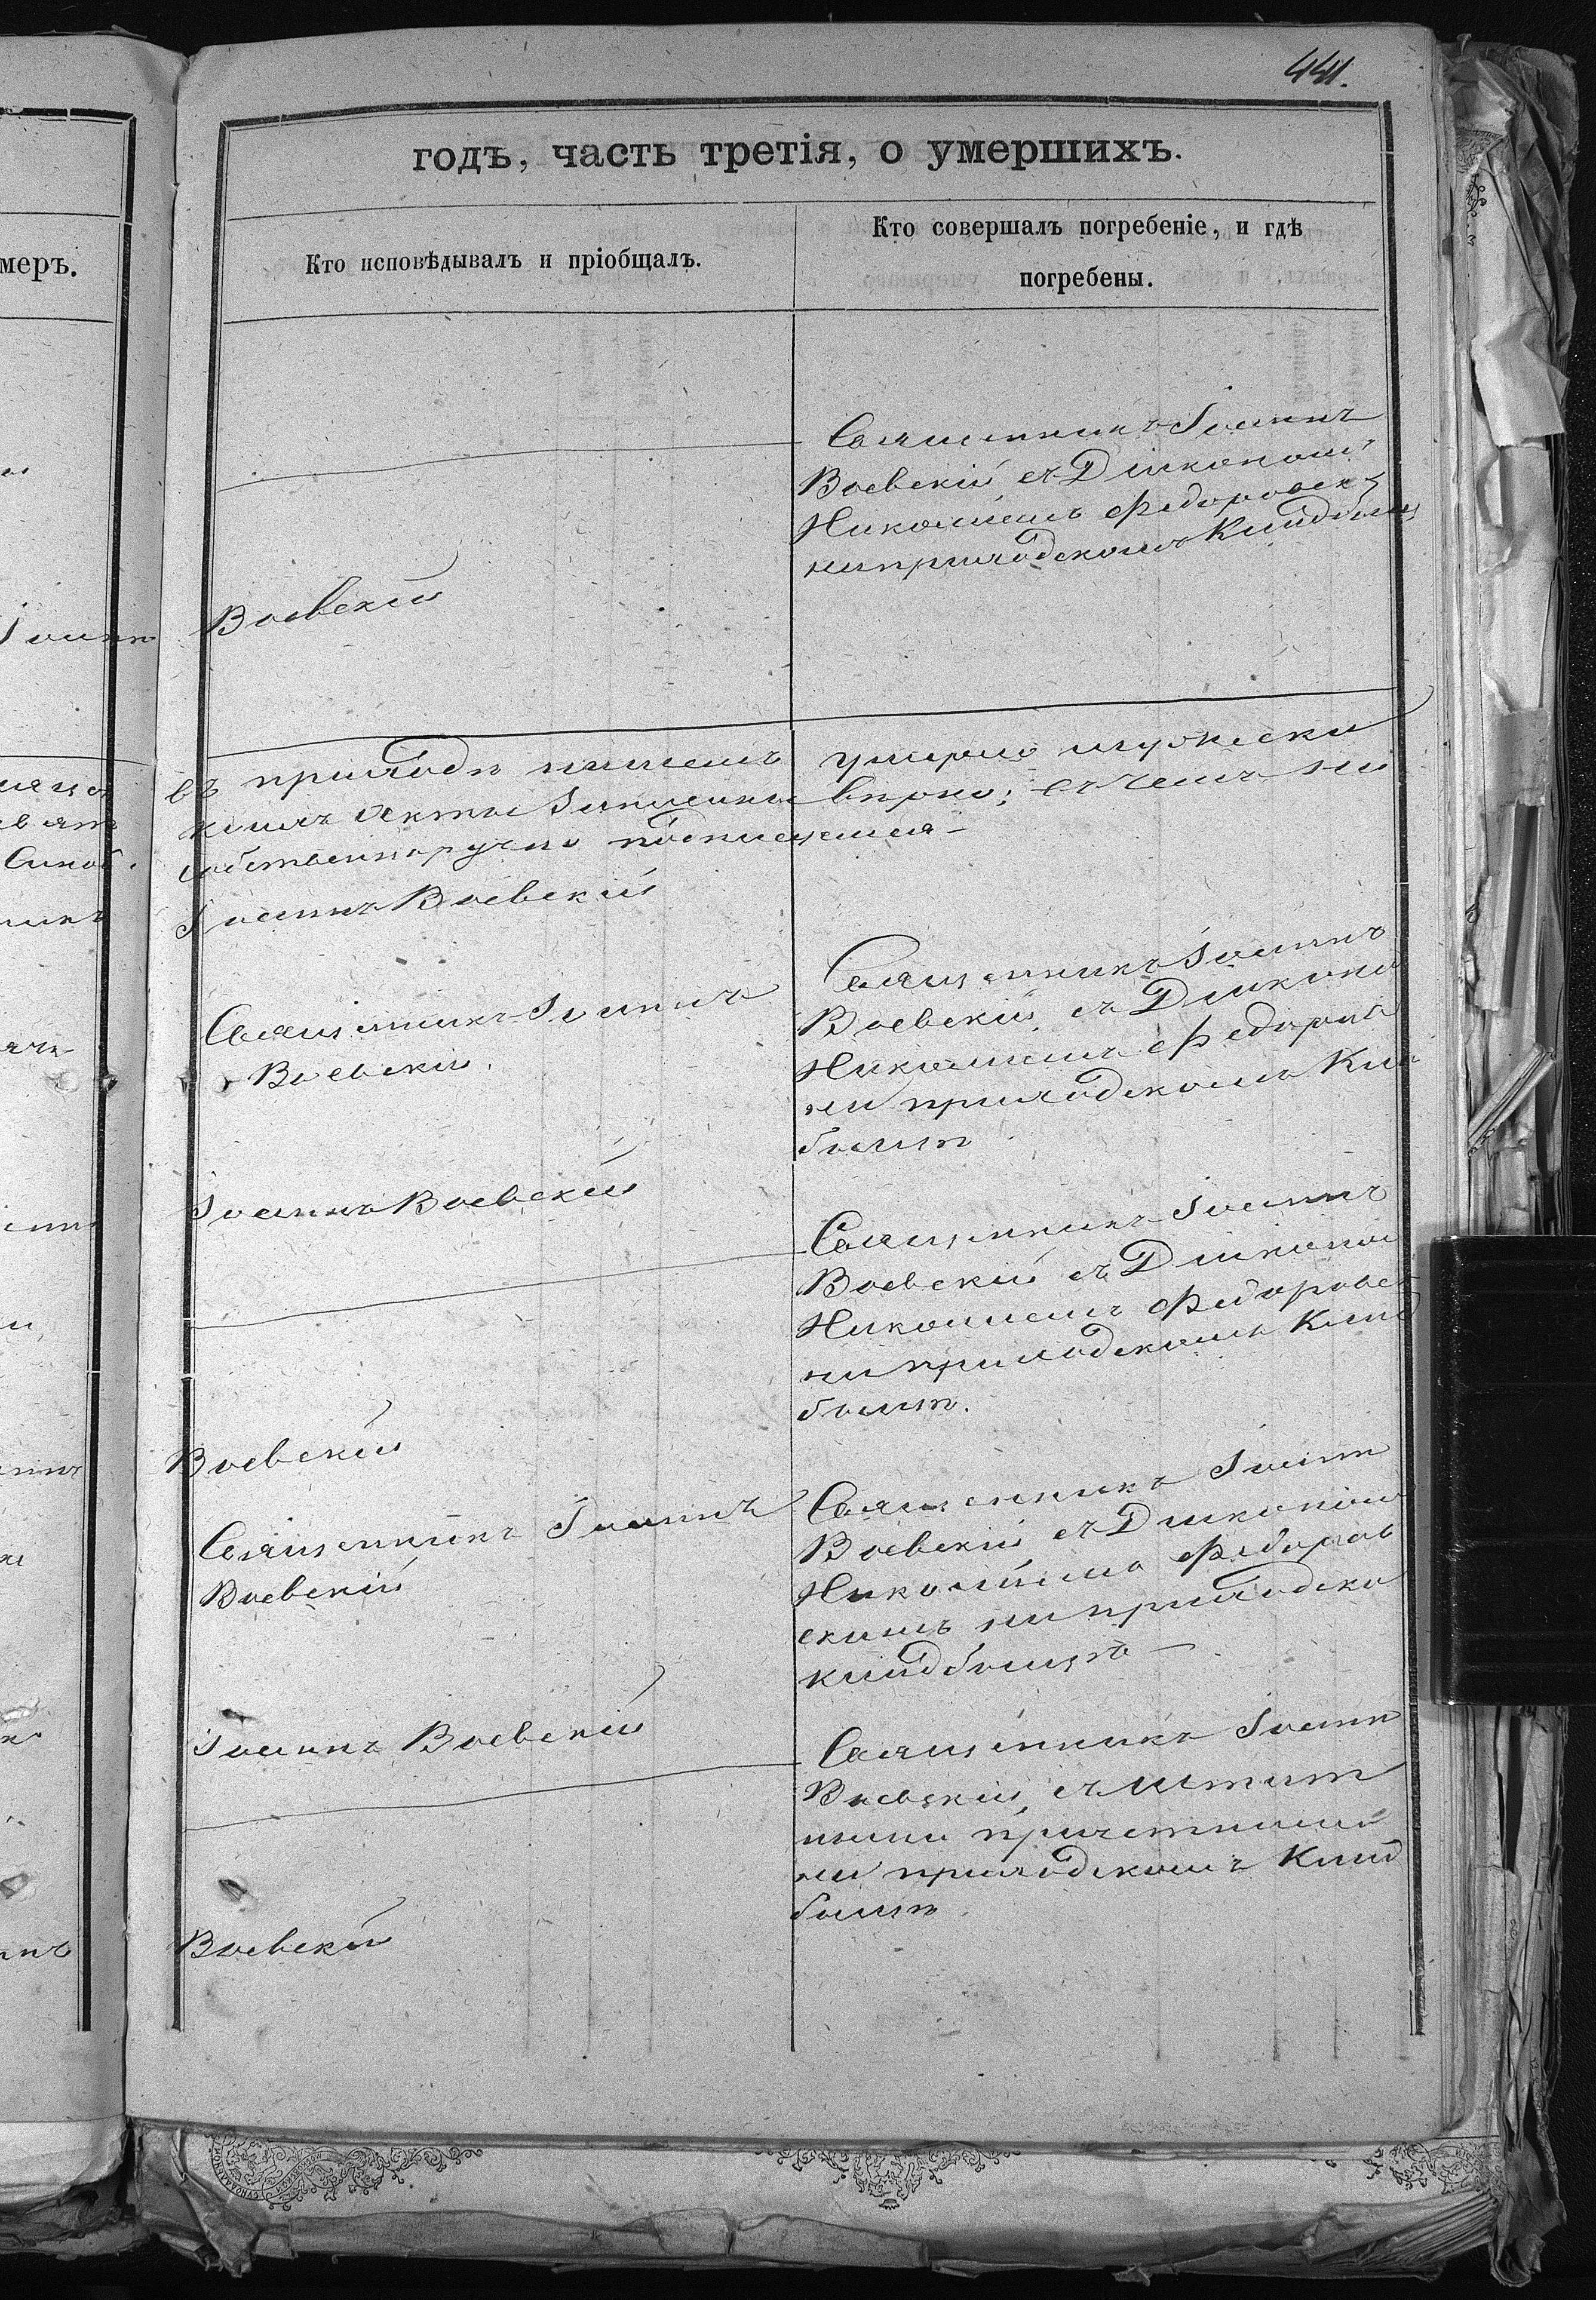 441.
годъ, часть третія, о умершихъ.
меръ.
Кто исповѣдывалъ и пріобщалъ.
Кто совершалъ погребеніе, и гдѣ
погребены.
Священникъ Іоаннъ
Воевскій съ Діакономъ
Николаемъ Федоровск
на приходскомъ Кладбищ
Воевскій
въ приходѣ нашемъ умерло мужеска
акты записаны вѣрно; въ чемъ и
собственноручно подписуемся
Іоаннъ Воевскій
Священникъ Іоаннъ
Воевскій.
Священникъ Іоаннъ
Воевскій, съ Діаконо
Николаемъ Федоров
на приходскомъ Кла
бищѣ
Іоаннъ Воевскій
Священникъ Іоаннъ
Воевскій съ Діаконом
Николаемъ Федоровск
на приходскомъ Клад
бищѣ.
Воевскій
Священникъ Іоаннъ
Воевскій
Священникъ Іоанн
Воевскій съ Діакономъ
Николаемъ Федоров
скимъ на приходско
кладбищѣ
Іоаннъ Воевскій
Священникъ Іоанн
Воевскій, съ штат
ными причетниками
на приходскомъ Клад
бищѣ
Воевскій